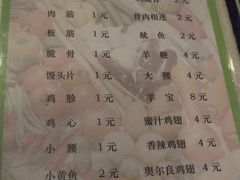 肉筋 1元 骨肉相连 2元
板筋 1元 鱿鱼 2元
脆骨 1元 羊鞭 4元
馒头片 1元 大腰 4元
鸡胗 1元 羊宝 8元
鸡心 1元 蜜汁鸡翅 4元
小腰 1元 香辣鸡翅 4元
小黄鱼 2元 奥尔良鸡翅 4元